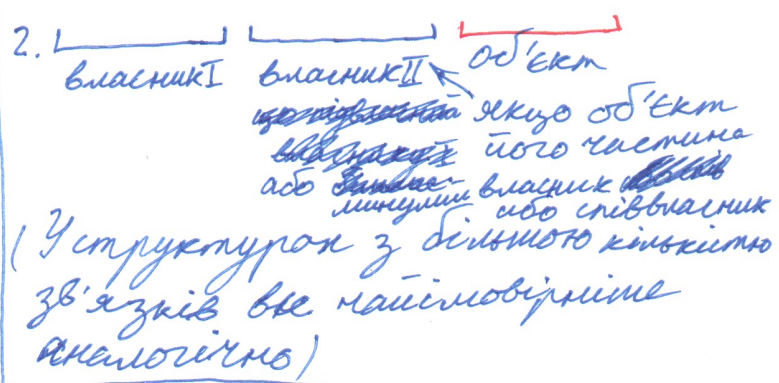 2.
власник I власник II об'єкт
якщо об'єкт
його частина
або минулий власник
або співвласник
(У структурах з більшою кількістю
зв'язків все найімовірніше
аналогічно)